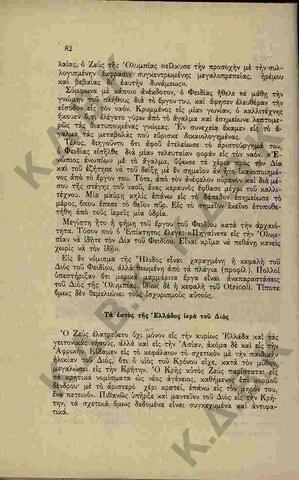 82
λαίας, ὁ Ζεὺς τῆς Ὀλυμπίας «εἵλκυσε τὴν προσοχὴν μὲ τὴν συλ-
λογισμένην ἔκφρασιν συγκεντρωμένης μεγαλοπρεπείας, ἠρέμου
καὶ βεβαίας δι' ἑαυτὴν δυνάμεως».
Σύμφωνα μὲ κάποιο ἀνέκδοτον, ὁ Φειδίας ἤθελε νὰ μάθῃ τὴν
γνώμην τοῦ πλήθους διὰ τὸ ἔργον του, καὶ ἄφησεν ἐλευθέραν τὴν
εἴσοδον εἰς τὸν ναόν. Κρυμμένος εἰς μίαν γωνίαν, ὁ καλλιτέχνης
ἤκουεν ὅ,τι ἐλέγετο γύρω ἀπὸ τὸ ἄγαλμα καὶ ἐσημείωνε λεπτομε-
ρῶς τὰς διατυπουμένας γνώμας. Ἐν συνεχείᾳ ἔκαμεν εἰς τὸ ἄ-
γαλμα τὰς μεταβολὰς ποὺ εὕρισκε δικαιολογημένας.
Τέλος, διηγοῦντο ὅτι ἀφοῦ ἐτελείωσε τὸ ἀριστούργημά του,
ὁ Φειδίας εἰσῆλθε διὰ μίαν τελευταίαν φορὰν εἰς τὸν ναόν. «Ἐ-
νώπιος ἐνωπίῳ» μὲ τὸ ἄγαλμα, ὕψωσε τὰ χέρια πρὸς τὸν Δία
καὶ τοῦ ἐζήτησε νὰ τοῦ δείξῃ μὲ ἓν σημεῖον ἂν ἦτο ἱκανοποιημέ-
νος ἀπὸ τὸ ἔργον του. Τότε, ἀπὸ τὸν ἀνέφελον οὐρανὸν καὶ διὰ μέ-
σου τῆς στέγης τοῦ ναοῦ, ἕνας κεραυνὸς ἔφθασε μέχρι τοῦ καλλι-
τέχνου. Μία μαύρη κηλὶς ἐπάνω εἰς τὸ δάπεδον ἐσημείωσε τὸ
μέρος, ὅπου ἔπεσε τὸ θεῖον πῦρ. Εἰς τὸ σημεῖον ἐκεῖνο ἐτοποθε-
τήθη ἀπὸ τοὺς ἱερεῖς μία ὑδρία.
Μεγίστη ἦτο ἡ φήμη τοῦ ἔργου τοῦ Φειδίου κατὰ τὴν ἀρχαιό-
τητα. Τόσον ποὺ ὁ Ἐπίκτητος ἔλεγε: «Πηγαίνετε εἰς τὴν Ὀλυμ-
πίαν νὰ ἰδῆτε τὸν Δία τοῦ Φειδίου. Εἶναι κρῖμα νὰ πεθάνῃ κανεὶς
χωρὶς νὰ τὸν ἰδῇ».
Εἰς ἓν νόμισμα τῆς Ἤλιδος εἶναι χαραγμένη ἡ κεφαλὴ τοῦ
Διὸς τοῦ Φειδίου, ἀλλὰ θεωμένη ἀπὸ τὰ πλάγια (προφίλ). Πολλοὶ
ὑπεστήριξαν ὅτι μερικὰ μαρμάρινα ἔργα εἶναι ἀναπαραστάσεις
τοῦ Διὸς τῆς Ὀλυμπίας, ἰδίως δὲ ἡ κεφαλὴ τοῦ Otricoli. Τίποτε
ὅμως δὲν θεμελιώνει τοὺς ἰσχυρισμοὺς αὐτούς.
Τὰ ἐκτὸς τῆς Ἑλλάδος ἱερὰ τοῦ Διὸς
Ὁ Ζεὺς ἐλατρεύετο ὄχι μόνον εἰς τὴν κυρίως Ἑλλάδα καὶ τὰς
γειτονικὰς νήσους, ἀλλὰ καὶ εἰς τὴν Ἀσίαν, ἀκόμα δὲ καὶ εἰς τὴν
Ἀφρικήν. Εἴδαμεν εἰς τὸ κεφάλαιον τὸ σχετικὸν μὲ τὴν παιδικὴν
ἡλικίαν τοῦ Διός, ὅτι ὁ υἱὸς τοῦ Κρόνου εἶχε, κατὰ τὸν μῦθον,
μεγαλώσει εἰς τὴν Κρήτην. Ὁ Κρὴς αὐτὸς Ζεὺς παρίσταται εἰς
τὰ κρητικὰ νομίσματα ὡς νέος ἀγένειος, καθήμενος εἰς κορμοῦ
δένδρου μὲ τὸ ἀριστερὸ χέρι κρατεῖ, ἐπάνω εἰς τὸν μηρόν του,
ἕνα πετεινόν. Πιθανῶς ὑπῆρξε καὶ μαντεῖον τοῦ Διὸς εἰς τὴν Κρή-
την, τὰ σχετικὰ ὅμως δεδομένα εἶναι συγκεχυμένα καὶ ἀντιφα-
τικά.